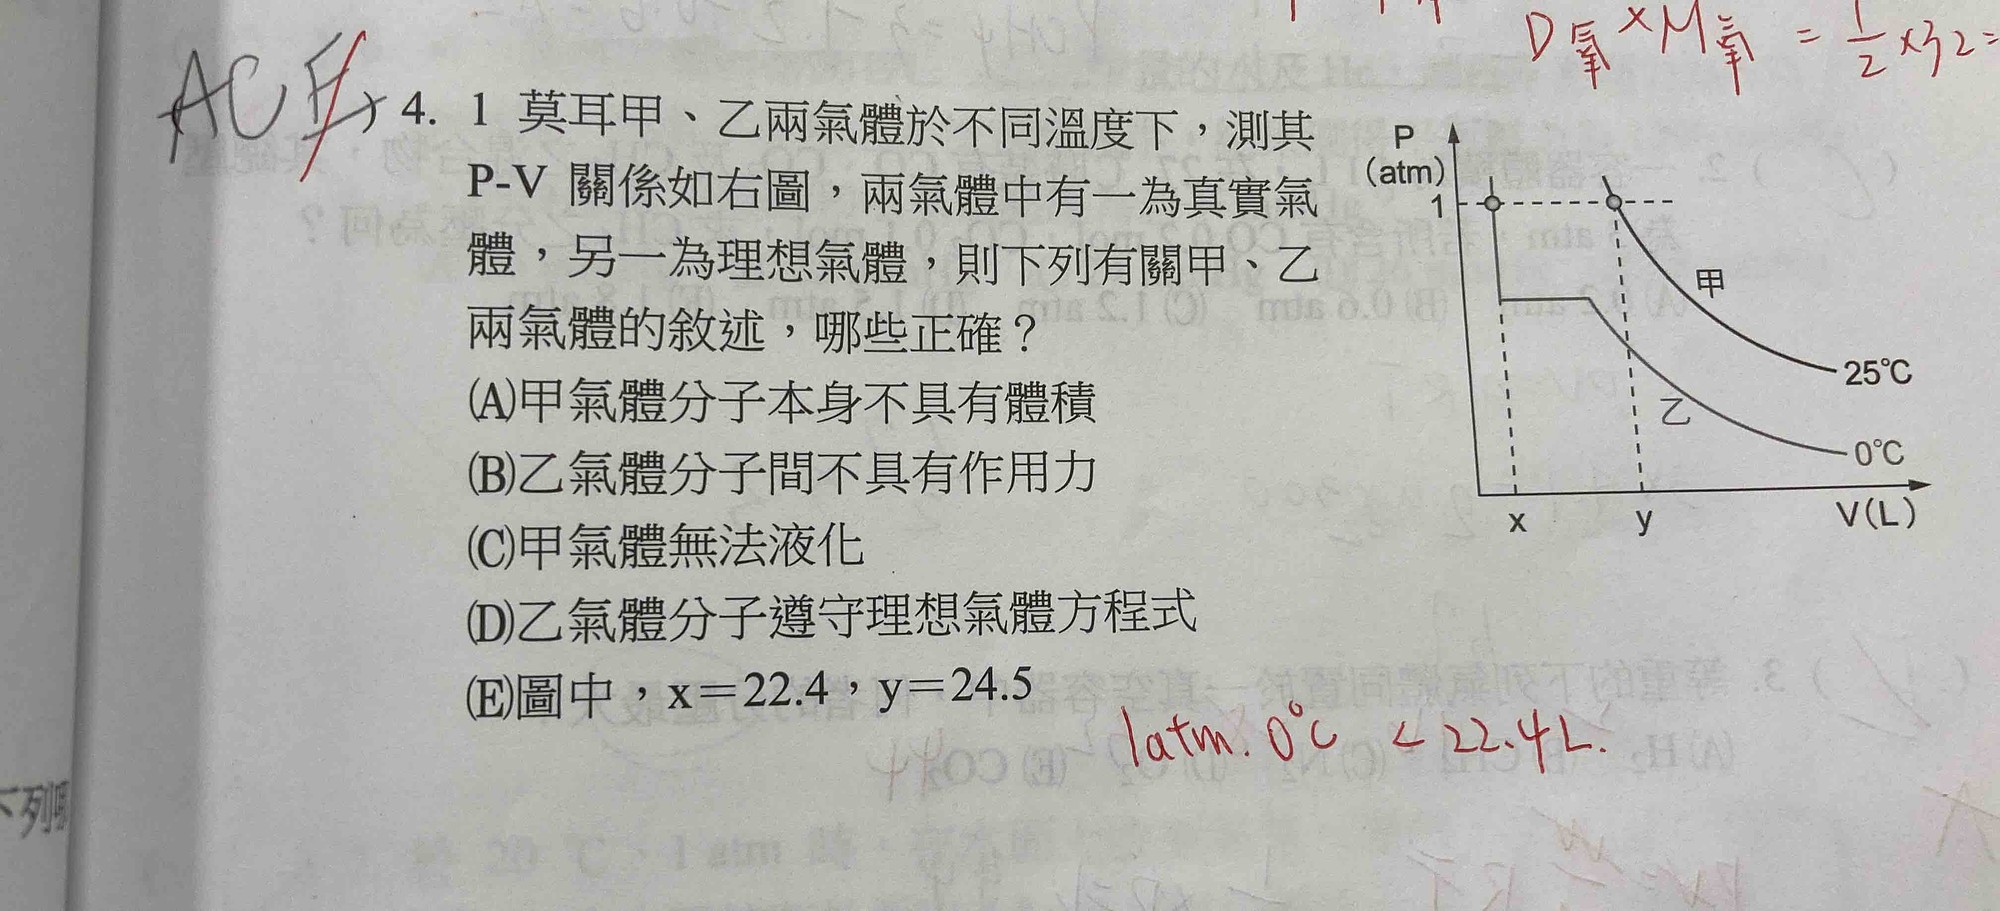 D氧×M氧=1/2×32=
ACE
4. 1 莫耳甲、乙兩氣體於不同溫度下,測其
P-V 關係如右圖,兩氣體中有一為真實氣
體,另一為理想氣體,則下列有關甲、乙
兩氣體的敘述,哪些正確?
(A)甲氣體分子本身不具有體積
(B)乙氣體分子間不具有作用力
(C)甲氣體無法液化
(D)乙氣體分子遵守理想氣體方程式
(E)圖中,x=22.4,y=24.5
1atm. 0°C < 22.4L.
P
(atm)
1
甲
25°C
乙
0°C
x y V(L)
下列哪